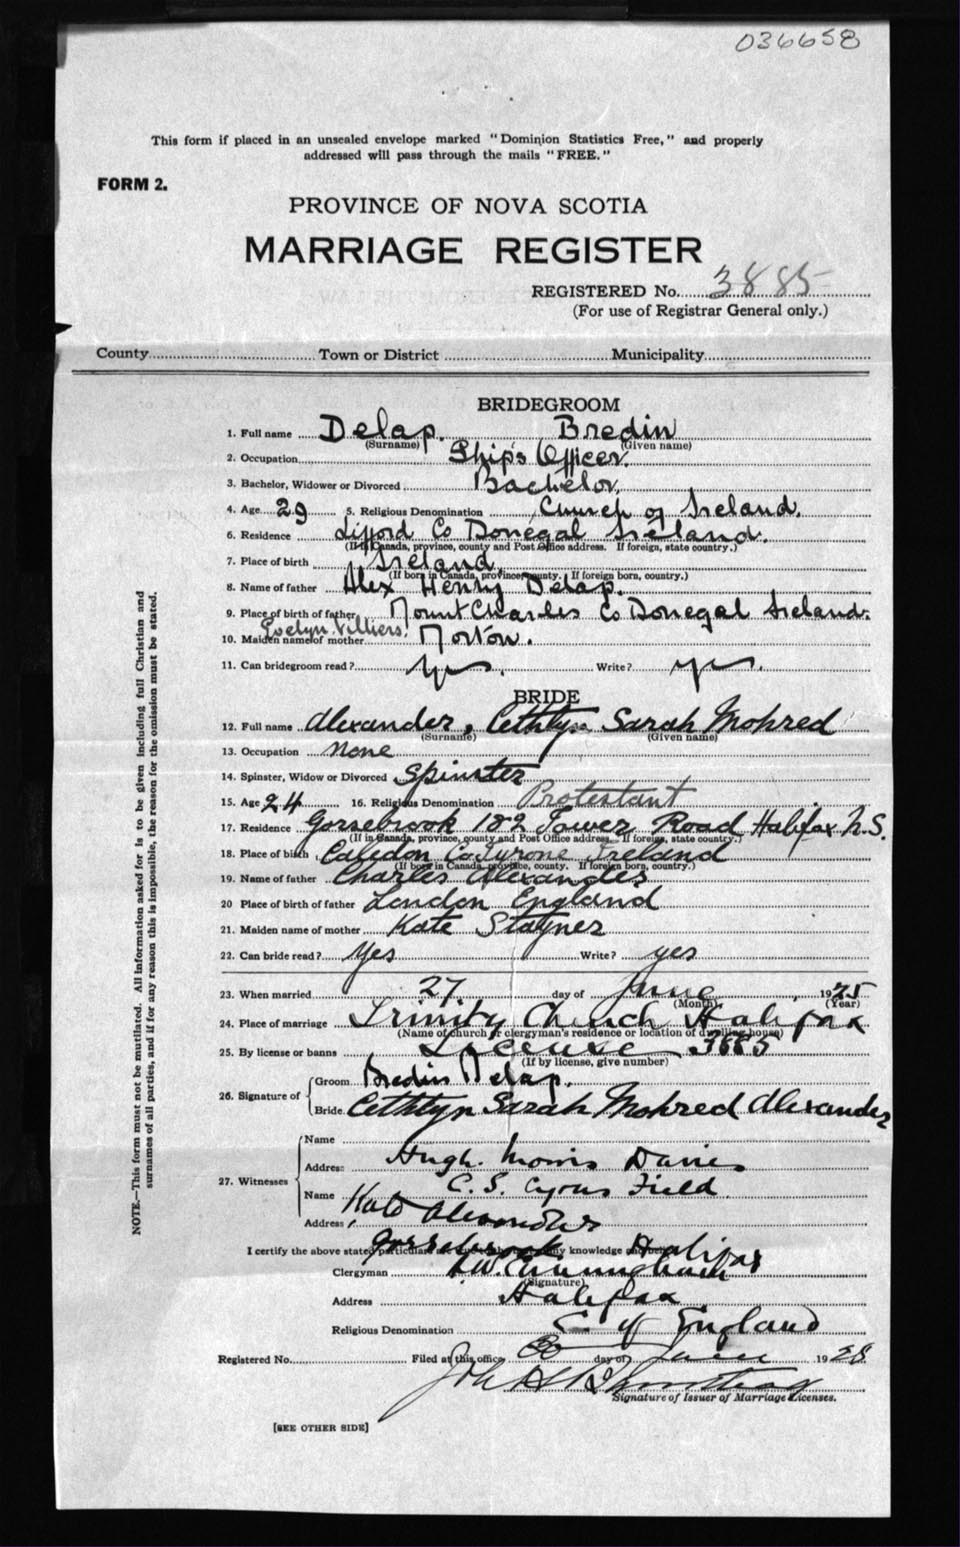 036658
This form if placed in an unsealed envelope marked "Dominion Statistics Free," and properly
addressed will pass through the mails "FREE."
FORM 2.
PROVINCE OF NOVA SCOTIA
MARRIAGE REGISTER
REGISTERED No. 3885
(For use of Registrar General only.)
County Town or District Municipality
BRIDEGROOM
1. Full name Delap. Bredin
(Surname) (Given name)
2. Occupation Ship's Officer.
3. Bachelor, Widower or Divorced Bachelor.
4. Age 29 5. Religious Denomination Church of Ireland.
6. Residence Lifford Co Donegal Ireland.
(If in Canada, province, county and Post Office address. If foreign, state country.)
7. Place of birth Ireland.
(If born in Canada, province, county. If foreign born, country.)
8. Name of father Alex Henry Delap.
9. Place of birth of father Mount Charles Co Donegal Ireland.
Evelyn Villiers
10. Maiden name of mother Morton.
11. Can bridegroom read? yes. Write? yes.
BRIDE
12. Full name Alexander, Cethtyn Sarah Mohred
(Surname) (Given name)
13. Occupation none
14. Spinster, Widow or Divorced Spinster
15. Age 24 16. Religious Denomination Protestant
17. Residence Gorsebrook 182 Tower Road Halifax N.S.
(If in Canada, province, county and Post Office address. If foreign, state country.)
18. Place of birth Caledon Co Tyrone Ireland
(If born in Canada, province, county. If foreign born, country.)
19. Name of father Charles Alexander
20 Place of birth of father London England
21. Maiden name of mother Kate Stayner
22. Can bride read? Yes Write? yes
23. When married 27 day of June 1925
(Month) (Year)
24. Place of marriage Trinity Church Halifax
(Name of church or clergyman's residence or location of dwelling house)
25. By license or banns License 3885
(If by license, give number)
26. Signature of
Groom Bredin Delap.
Bride Cethtyn Sarah Mohred Alexander
27. Witnesses
Name
Address Hugh Morris Davies
Name C. S. Cyrus Field
Address Kate Alexander
Gorsebrook Halifax
I certify the above stated particulars are true to the best of my knowledge and belief
Clergyman Cunningham
(Signature)
Address Halifax
Religious Denomination C. of England
Registered No. Filed at this office 30 day of June 19
Signature of Issuer of Marriage Licenses.
[SEE OTHER SIDE]
NOTE.—This form must not be mutilated. All information asked for is to be given including full Christian and
surnames of all parties, and if for any reason this is impossible, the reason for the omission must be stated.